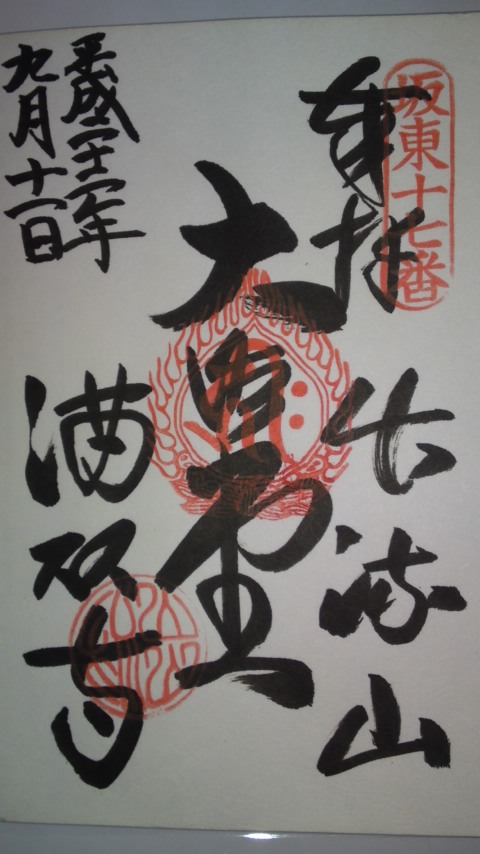 坂東十七番
奉拝
出流山
大堂
平成二十二年
九月十一日
満願寺